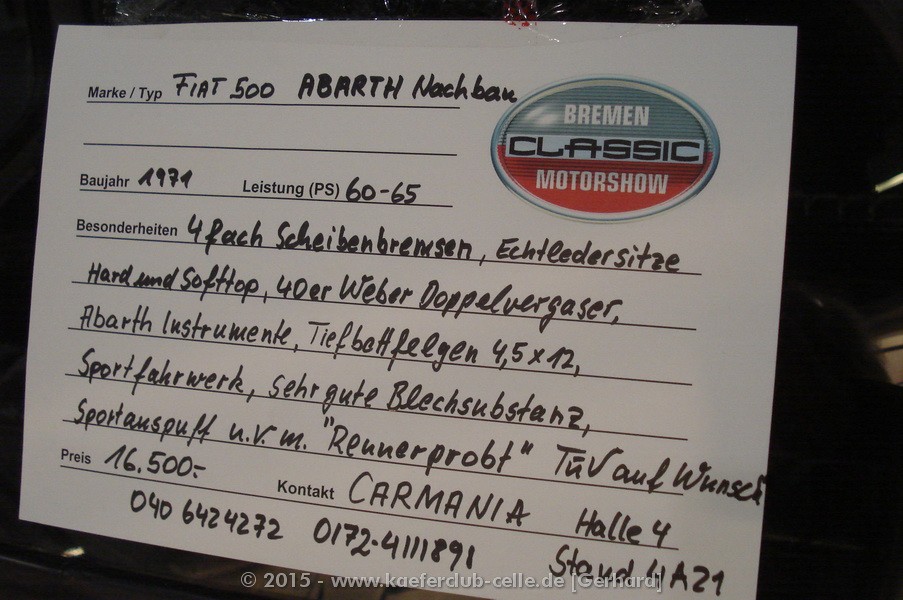 Marke / Typ FIAT 500 ABARTH Nachbau
BREMEN
CLASSIC
MOTORSHOW
Baujahr 1971 Leistung (PS) 60-65
Besonderheiten 4fach Scheibenbremsen, Echtledersitze
Hard und Softtop, 40er Weber Doppelvergaser,
Abarth Instrumente, Tiefbettfelgen 4,5x12,
Sportfahrwerk, sehr gute Blechsubstanz,
Sportauspuff u.v.m. "Rennerprobt" TÜV auf Wunsch
Preis 16.500.- Kontakt CARMANIA Halle 4
040 6424272 0172-4111891 Stand 4A21
© 2015 - www.kaeferclub-celle.de [Gerhard]